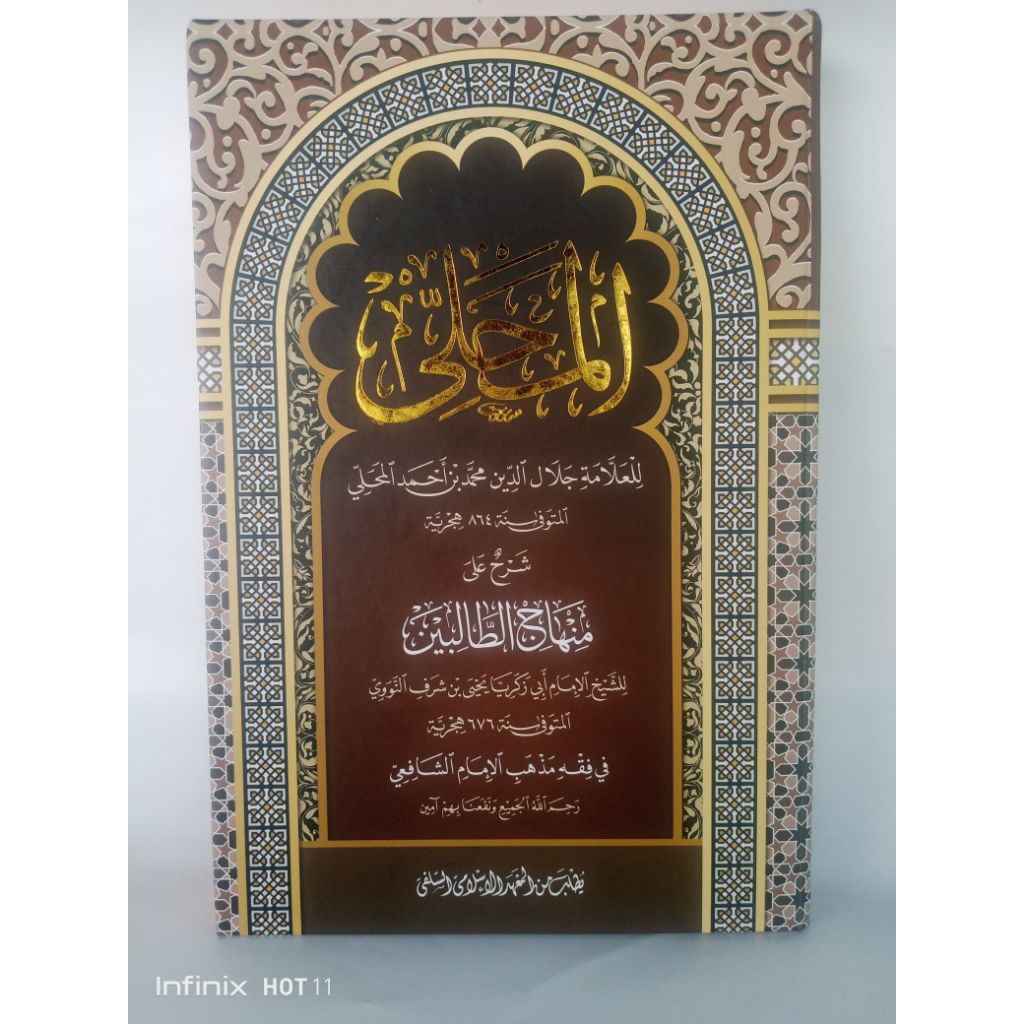 المحلي
للعلامة جلال الدين محمد بن أحمد المحلي
المتوفى سنة ٨٦٤ هجرية
شرح على
منهاج الطالبين
للشيخ الإمام أبي زكريا يحيى بن شرف النووي
المتوفى سنة ٦٧٦ هجرية
في فقه مذهب الإمام الشافعي
رحم الله الجميع ونفعنا بهم آمين
يطلب من المعهد الإسلامي السلفي
Infinix HOT 11